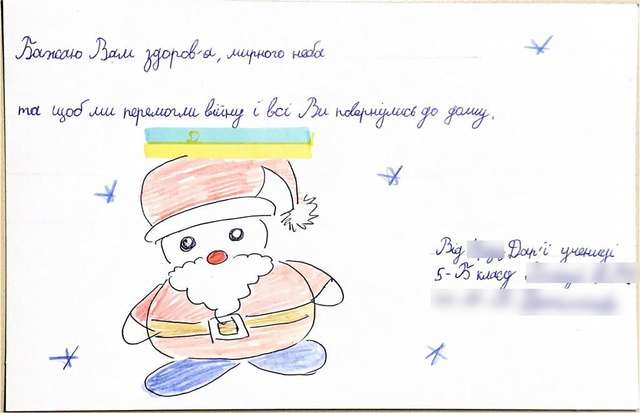 Бажаю Вам здоров-я, мирного неба
та щоб ми перемогли війну і всі Ви повернулись до дому.
Від Дар'ї учениці
5-Б класу